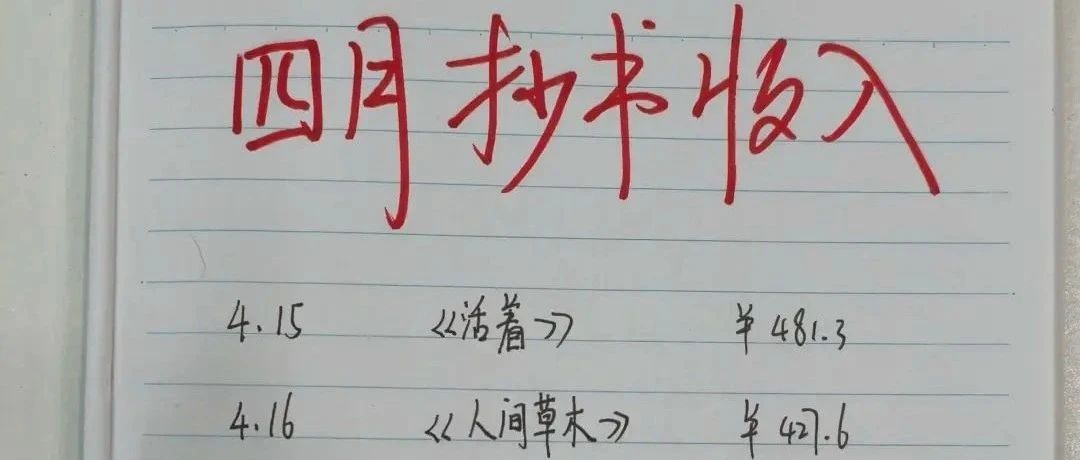 四月抄书收入
4.15 《活着》 ¥481.3
4.16 《人间草木》 ¥427.6